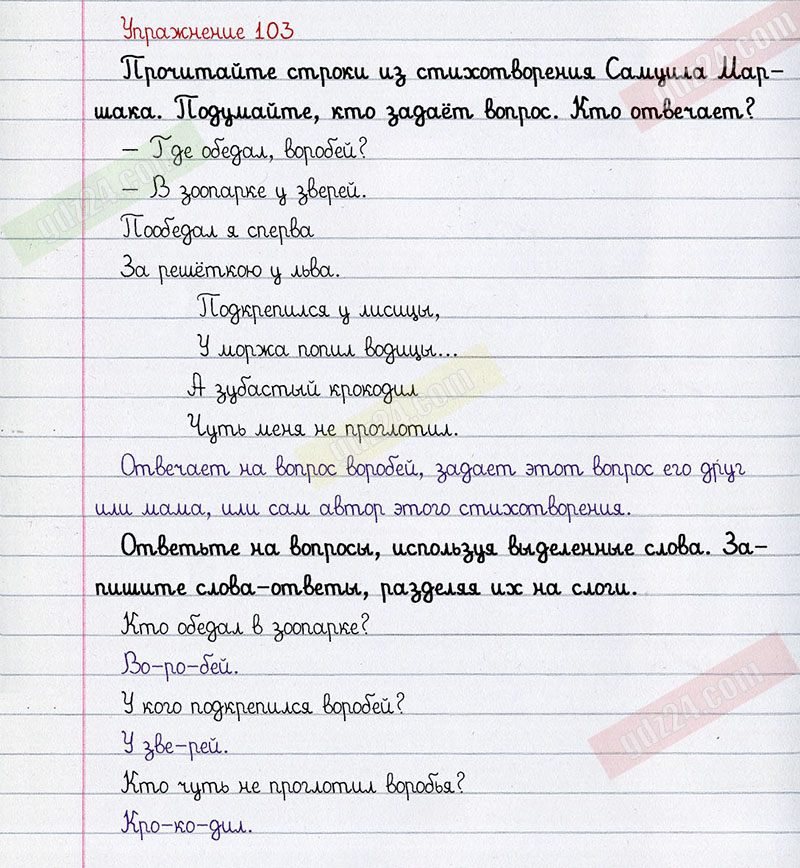 Упражнение 103
Прочитайте строки из стихотворения Самуила Мар-
шака. Подумайте, кто задаёт вопрос. Кто отвечает?
– Где обедал, воробей?
– В зоопарке у зверей.
Пообедал я сперва
За решёткою у льва.
Подкрепился у лисицы,
У моржа попил водицы...
А зубастый крокодил
Чуть меня не проглотил.
Отвечает на вопрос воробей, задает этот вопрос его друг
или мама, или сам автор этого стихотворения.
Ответьте на вопросы, используя выделенные слова. За-
пишите слова-ответы, разделяя их на слоги.
Кто обедал в зоопарке?
Во-ро-бей.
У кого подкрепился воробей?
У зве-рей.
Кто чуть не проглотил воробья?
Кро-ко-дил.
gdz24.com
gdz24.com
gdz24.com
gdz24.com